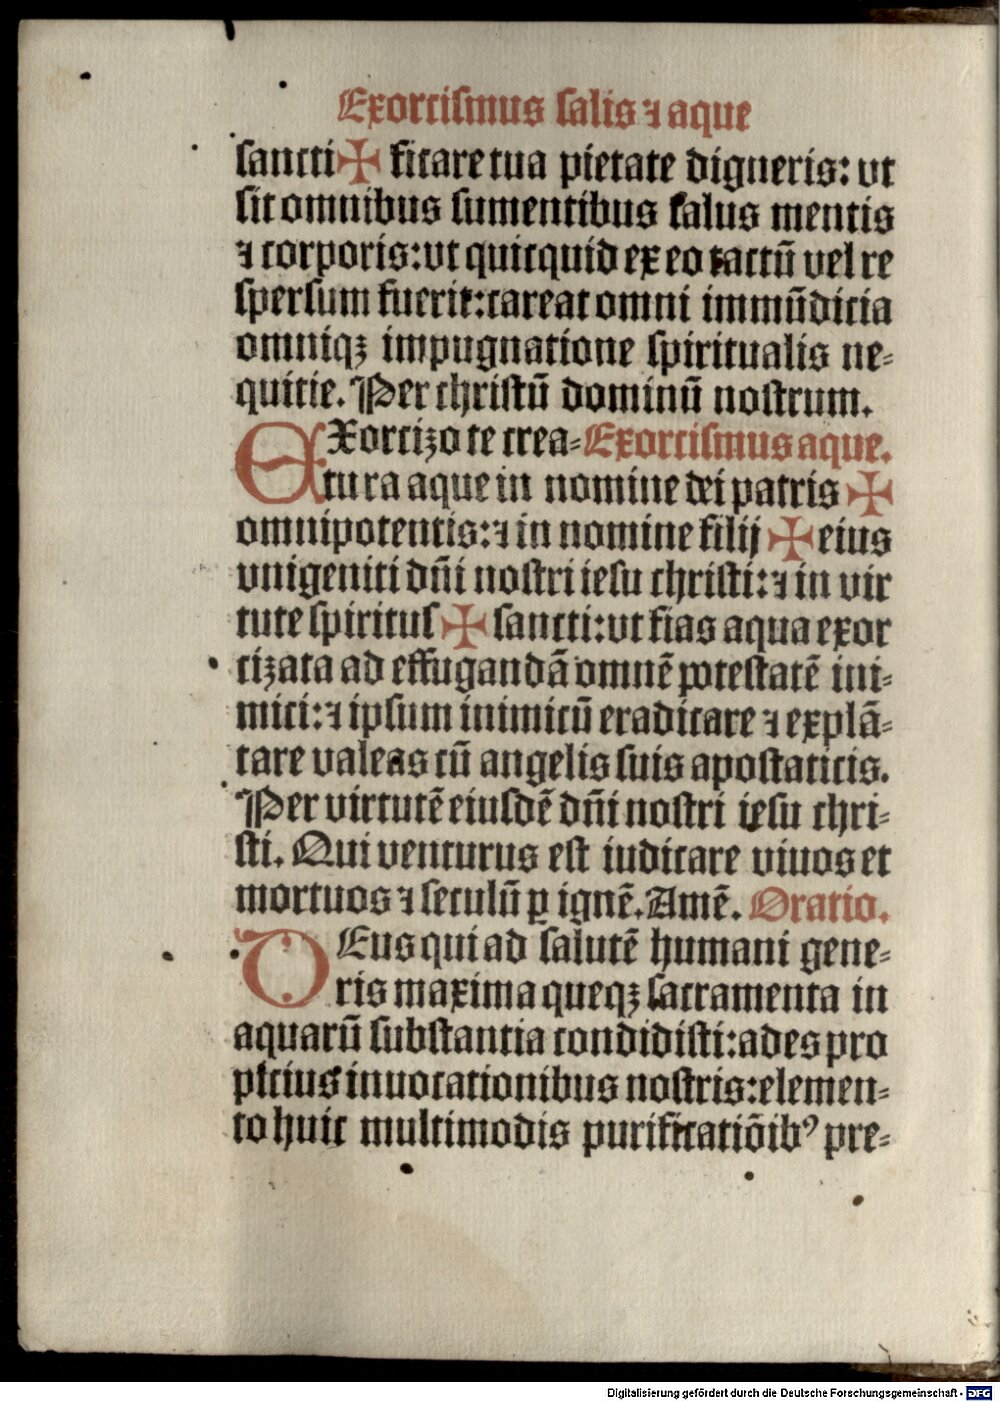 Exorcismus salis ⁊ aque
sancti✠ficare tua pietate digneris: vt
sit omnibus sumentibus salus mentis
⁊ corporis: vt quicquid ex eo tactū vel re
spersum fuerit: careat omni immūdicia
omniqꝫ impugnatione spiritualis ne⸗
quicie. Per christū dominū nostrum.
EXorcizo te crea⸗ Exorcismus aque.
tura aque in nomine dei patris ✠
omnipotentis: ⁊ in nomine filij ✠ eius
vnigeniti dn̄i nostri iesu christi: ⁊ in vir
tute spiritus ✠ sancti: vt fias aqua exor
cizata ad effugandā omnē potestatē ini⸗
mici: ⁊ ipsum inimicū eradicare ⁊ explā⸗
tare valeas cū angelis suis apostaticis.
Per virtutē eiusdē dn̄i nostri iesu chri⸗
sti. Qui venturus est iudicare viuos et
mortuos ⁊ seculū ꝑ ignē. Amē. Oratio.
DEus qui ad salutē humani gene⸗
ris maxima queqꝫ sacramenta in
aquarū substantia condidisti: ades pro
picius inuocationibus nostris: elemen⸗
to huic multimodis purificatiōibꝰ pre⸗
Digitalisierung gefördert durch die Deutsche Forschungsgemeinschaft - DFG